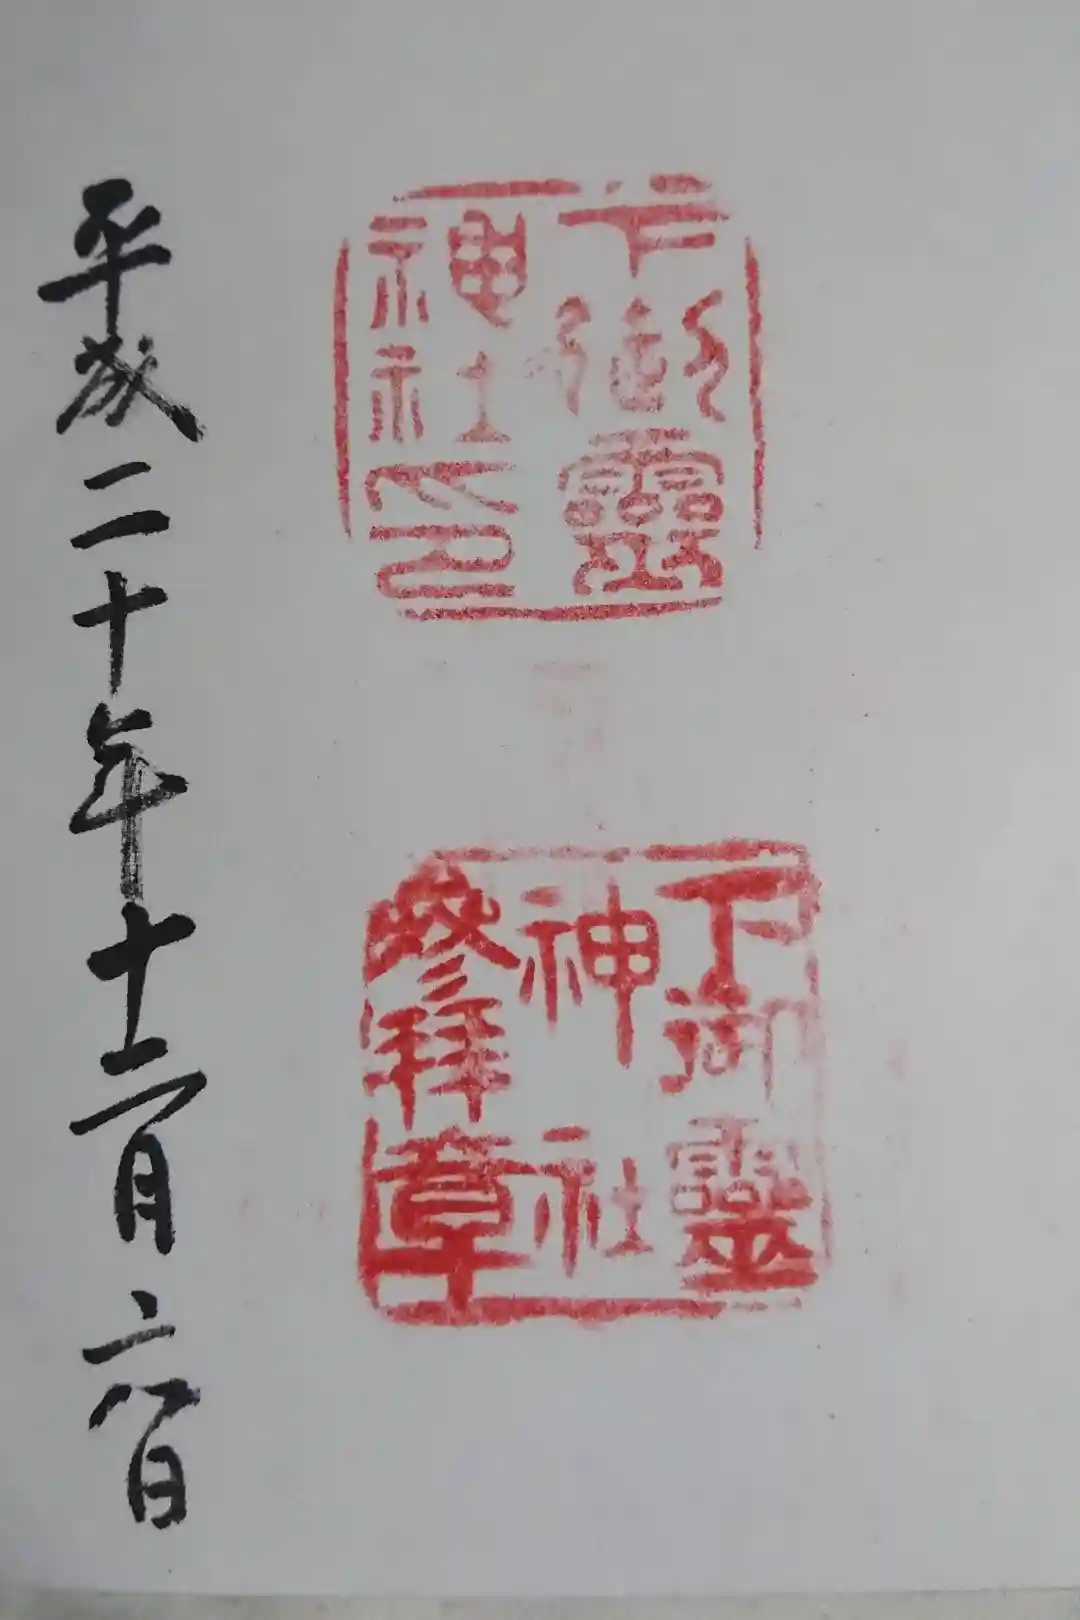 下御靈
神社印
下御靈
神社
參拜章
平成二十年十二月六日